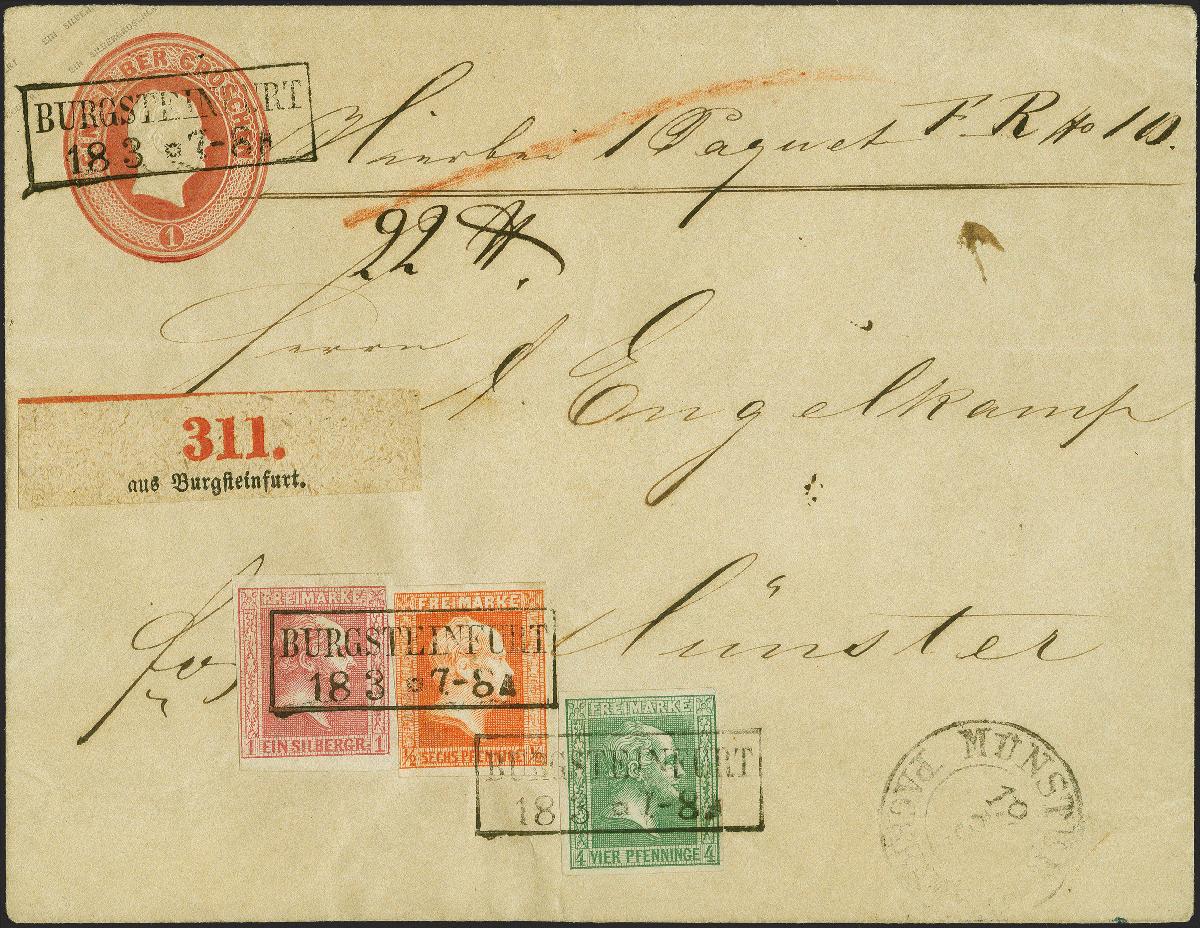 EIN SILBERGROSCHEN
EIN SILBER GROSCHEN
1
BURGSTEINFURT
18 3 7-8A
Hierbei 1 Paquet F R No 10.
22 ℔.
Herrn
Engelkamp
311.
aus Burgsteinfurt.
Münster
FREIMARKE
1 EIN SILBERGR. 1
FREIMARKE
1/2 SECHS PFENNINGE 1/2
BURGSTEINFURT
18 3 7-8A
FREIMARKE
4 VIER PFENNINGE 4
BURGSTEINFURT
18 3 7-8A
MÜNSTER
18